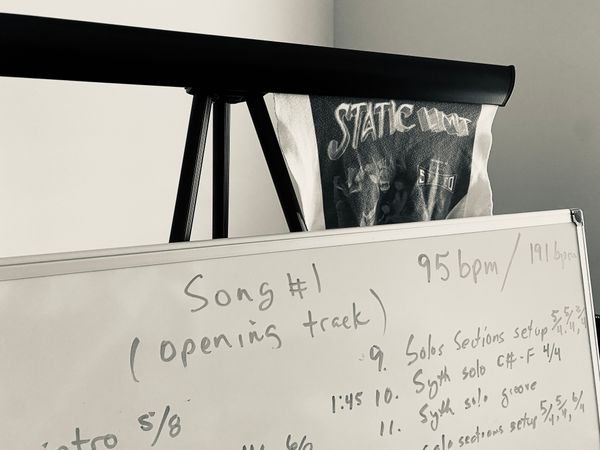 STATIC LIMIT
Song #1
(opening track)
95 bpm / 191 bpm
9. Solos Sections setup 5/4, 5/4,
1:45 10. Syth solo C#-F 4/4
11. Syth solo groove
solo sections setup 5/4, 5/4, 6/4
intro 5/8